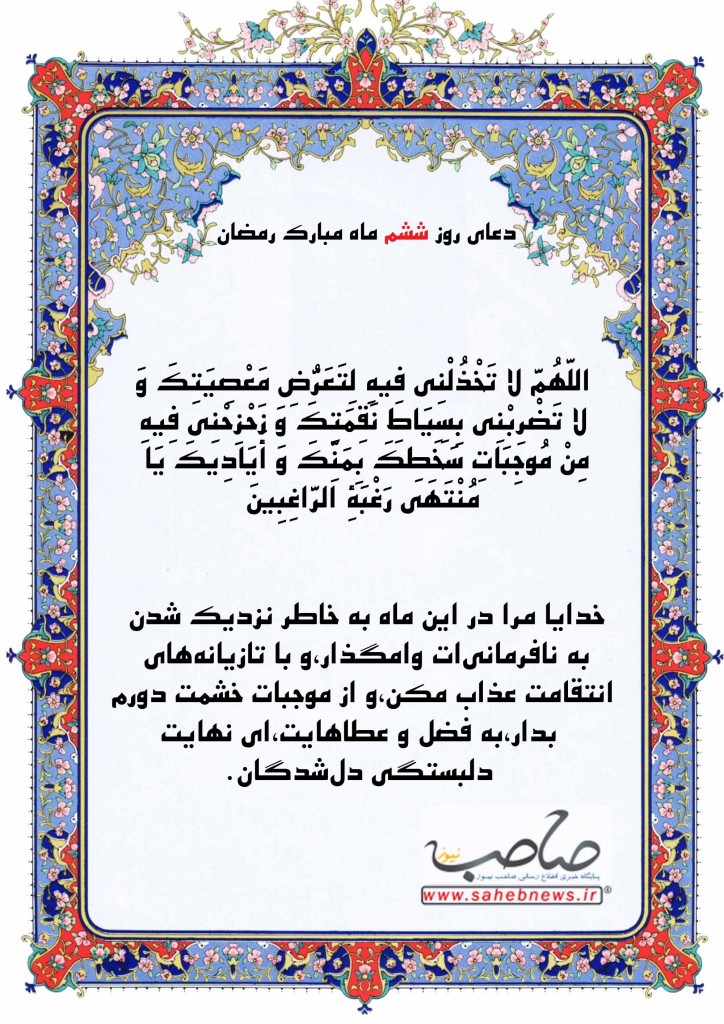 دعای روز ششم ماه مبارک رمضان
اللّهُمّ لا تَخْذُلْنی فیهِ لِتَعَرُّضِ مَعْصِیَتِکَ وَ
لا تَضْرِبْنی بِسِیَاطِ نَقِمَتِکَ وَ زَحْزِحْنی فیهِ
مِنْ مُوجِبَاتِ سَخَطِکَ بِمَنّکَ وَ أَیَادِیکَ یَا
مُنْتَهَی رَغْبَةِ الرّاغِبِینَ
خدایا مرا در این ماه به خاطر نزدیک شدن
به نافرمانی‌ات وامگذار،و با تازیانه‌های
انتقامت عذاب مکن،و از موجبات خشمت دورم
بدار،به فضل و عطاهایت،ای نهایت
دلبستگی دل‌شدگان.
صاحب نیوز
پایگاه خبری اطلاع رسانی صاحب نیوز
www.sahebnews.ir®